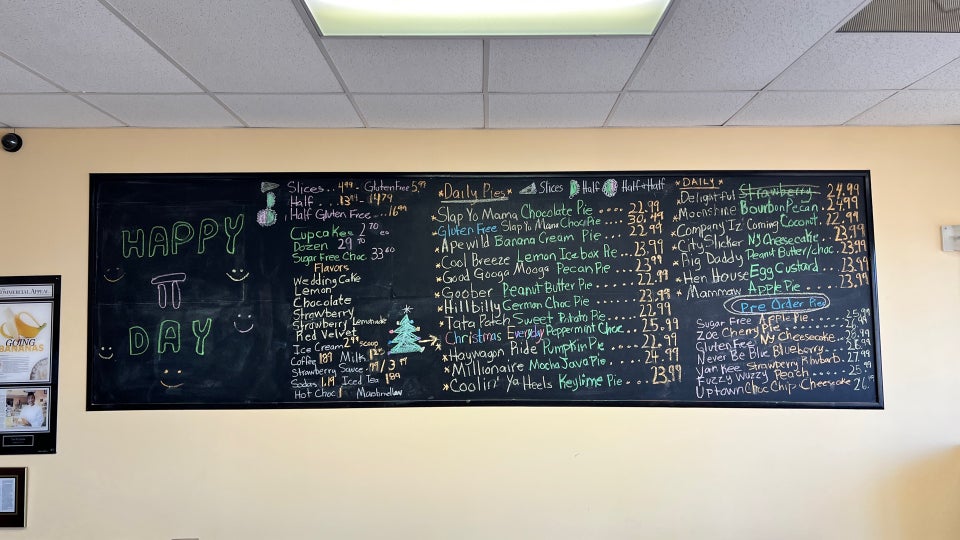 HAPPY
π
DAY
Slices.. 4.99. Gluten Free 5.99
Half .. 13
Half Gluten Free... 16.99
Cupcakes 2.70 ea
Dozen 29.70
Sugar Free Choc 33.60
Flavors
Wedding Cake
Lemon
Chocolate
Strawberry
Strawberry Lemonade
Red Velvet
Ice Cream 2.49 scoop
Coffee 1.89 Milk
Strawberry Sauce .99
Sodas 1.19 Iced Tea 1.89
Hot Choc Marshmallow
*Daily Pies* Slices Half Half+Half
*Slap Yo Mama Chocolate Pie .... 22.99
*Gluten Free Slap Yo Mama Choc Pie ... 30.49
*Apewild Banana Cream Pie... 22.99
*Cool Breeze Lemon Icebox Pie... 23.99
*Good Googa Mooga Pecan Pie ... 23.99
*Goober Peanut Butter Pie ..... 22.99
*Hillbilly German Choc Pie ..... 23.99
*Tata Patch Sweet Potato Pie ... 22.99
Christmas Everyday Peppermint Choc ... 25.99
*Haywagon Ride Pumpkin Pie .... 21.99
*Millionaire Mocha Java Pie.... 24.99
*Coolin' Ya Heels Keylime Pie .... 23.99
*DAILY*
*Delightful Strawberry 24.99
*Moonshine Bourbon Pecan. 24.99
*Company Iz Coming Coconut. 22.99
*City Slicker NY Cheesecake.. 23.99
*Big Daddy Peanut Butter/choc. 23.99
*Hen House Egg Custard .. 23.99
*Mammaw Apple Pie .... 23.99
Pre Order Pies
Sugar Free Apple Pie....
Zoo Cherry Pie
Gluten Free NY Cheesecake..
Never Be Blue Blueberry..
Yankee Strawberry Rhubarb. 27.99
Fuzzy Wuzzy Peach ...... 25
Uptown Choc Chip Cheesecake 26
COMMERCIAL APPEAL
GOING
BANANAS